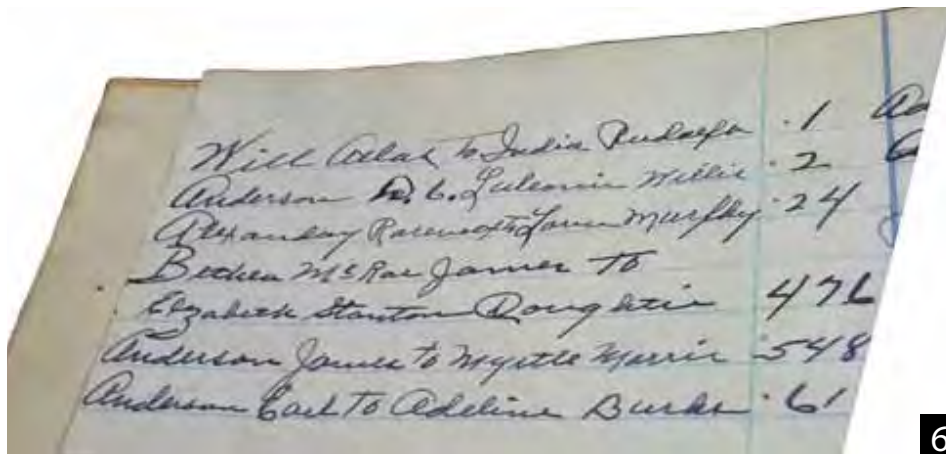 Will Adas to India Rudolph . 1
Anderson D. C. Lulconie Willis . 2
Alexanday to Laura Murphy . 24
Bethea McRae James to
Elzabeth Stanton Doughtie 476
Anderson James to Myrtle Morris 548
Anderson Earl To Adeline Burks . 61
6